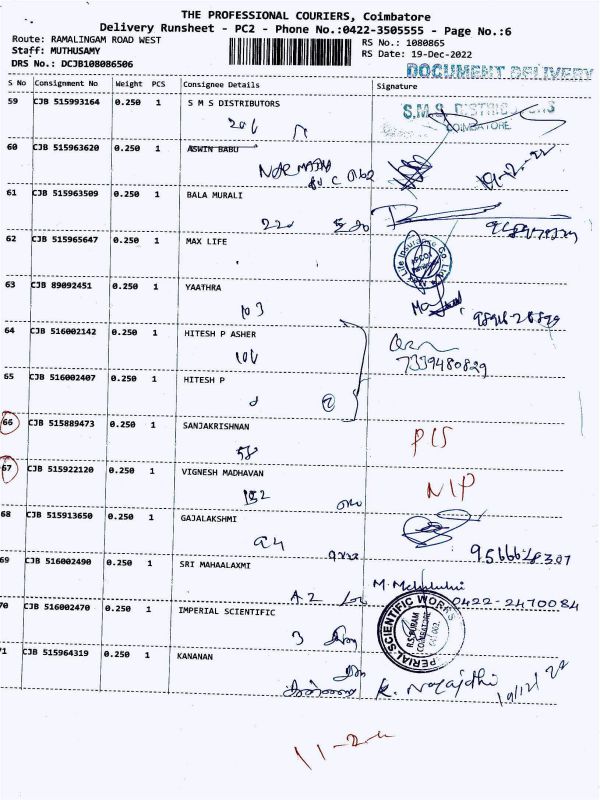 THE PROFESSIONAL COURIERS, Coimbatore
Delivery Runsheet - PC2 - Phone No.:0422-3505555 - Page No.:6
Route: RAMALINGAM ROAD WEST RS No.: 1080865
Staff: MUTHUSAMY RS Date: 19-Dec-2022
DRS No.: DCJB108086506 DOCUMENT DELIVERY
S No Consignment No Weight PCS Consignee Details Signature
59 CJB 515993164 0.250 1 S M S DISTRIBUTORS S.M.S. DISTRIBUTORS
COIMBATORE
206
60 CJB 515963620 0.250 1 ASWIN BABU 19-12-22
61 CJB 515963509 0.250 1 BALA MURALI
220
62 CJB 515965647 0.250 1 MAX LIFE Life Insurance Co. Ltd
63 CJB 89092451 0.250 1 YAATHRA
103
64 CJB 516002142 0.250 1 HITESH P ASHER
104 7339480829
65 CJB 516002407 0.250 1 HITESH P
66 CJB 515889473 0.250 1 SANJAKRISHNAN
58 PCS
67 CJB 515922120 0.250 1 VIGNESH MADHAVAN
N/P
68 CJB 515913650 0.250 1 GAJALAKSHMI
94
69 CJB 516002490 0.250 1 SRI MAHAALAXMI
A2 0422-2470084
70 CJB 516002470 0.250 1 IMPERIAL SCIENTIFIC IMPERIAL SCIENTIFIC WORKS
R.S.PURAM
COIMBATORE
3
71 CJB 515964319 0.250 1 KANANAN
K. 19/12/22